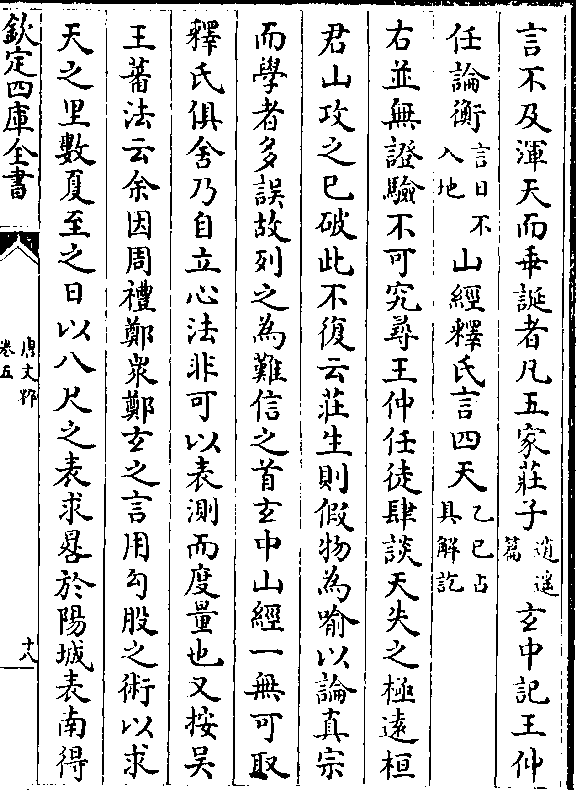 言不及渾天而乖誕者凡五家莊子逍遥篇玄中記王仲
任論衡言日不入地山經釋氏言四天乙巳占具解訖
右並無證驗不可究尋王仲任徒肆談天失之極遠桓
君山攻之已破此不復云莊生則假物為喻以論真宗
而學者多誤故列之為難信之首玄中山經一無可取
釋氏俱舍乃自立心法非可以表測而度量也又按吴
王蕃法云余因周禮鄭衆鄭玄之言用勾股之術以求
天之里數夏至之日以八尺之表求晷於陽城表南得
欽定四庫全書
唐文粹
卷五
十八